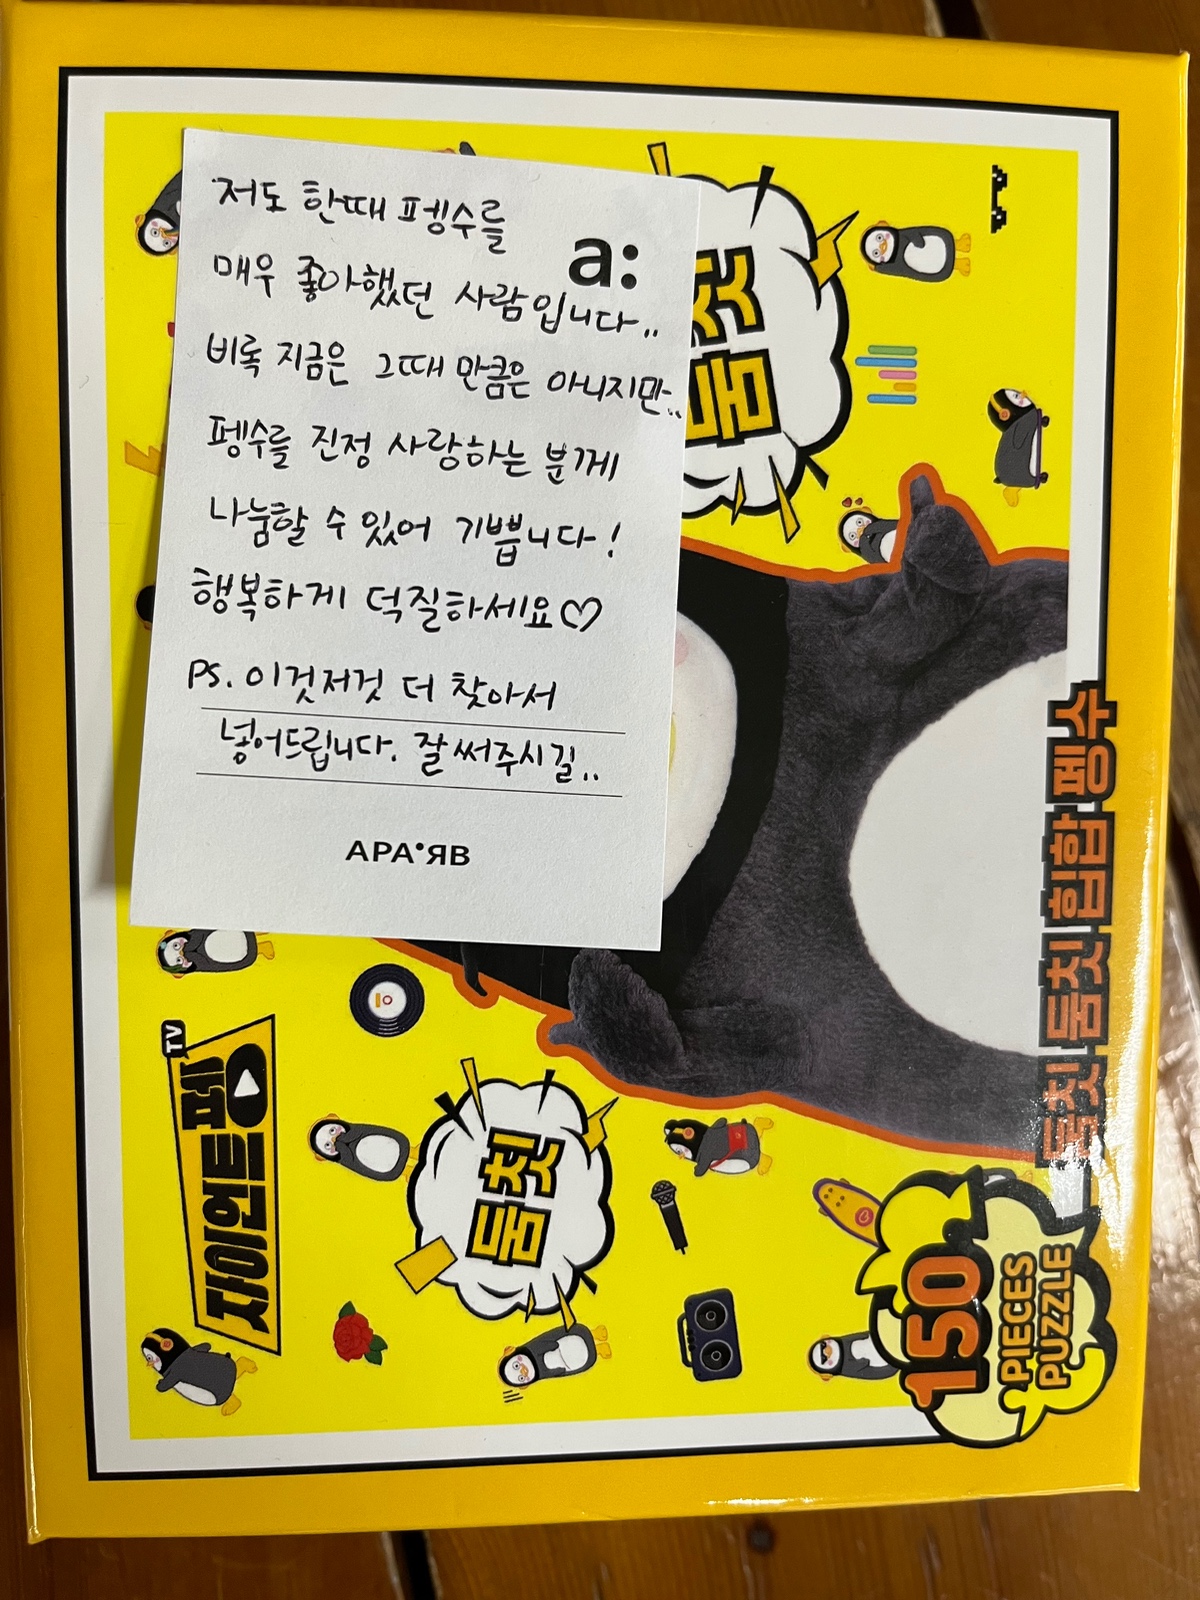 저도 한때 펭수를
a:
매우 좋아했던 사람입니다..
비록 지금은 그때 만큼은 아니지만..
펭수를 진정 사랑하는 분께
나눔할 수 있어 기쁩니다!
행복하게 덕질하세요♡
PS. 이것저것 더 찾아서
넣어드립니다. 잘 써주시길..
APA•ЯB
둠칫
둠칫
둠칫 둠칫 힙합 펭수
자이언트 펭
TV
150
PIECES
PUZZLE